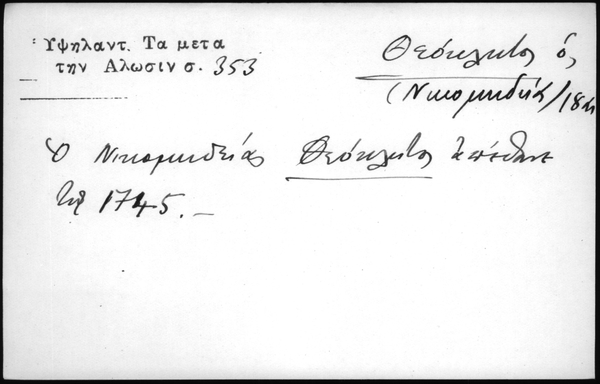 Υψηλαντ. Τα μετα
την Αλωσιν σ. 353
Θεόκλητος ὁ,
(Νικομηδείας/18
Ὁ Νικομηδείας Θεόκλητος ἀπέθανε
τῷ 1745. –